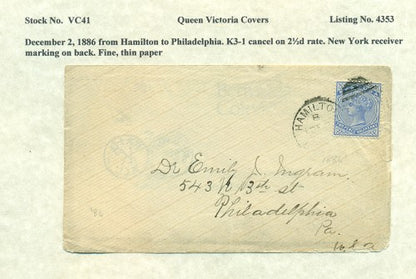 Stock No. VC41 Queen Victoria Covers Listing No. 4353
December 2, 1886 from Hamilton to Philadelphia. K3-1 cancel on 2½d rate. New York receiver
marking on back. Fine, thin paper
HAMILTON
Dr Emily J. Ingram
543 N 13th st
Philadelphia
Pa.
U.S.a